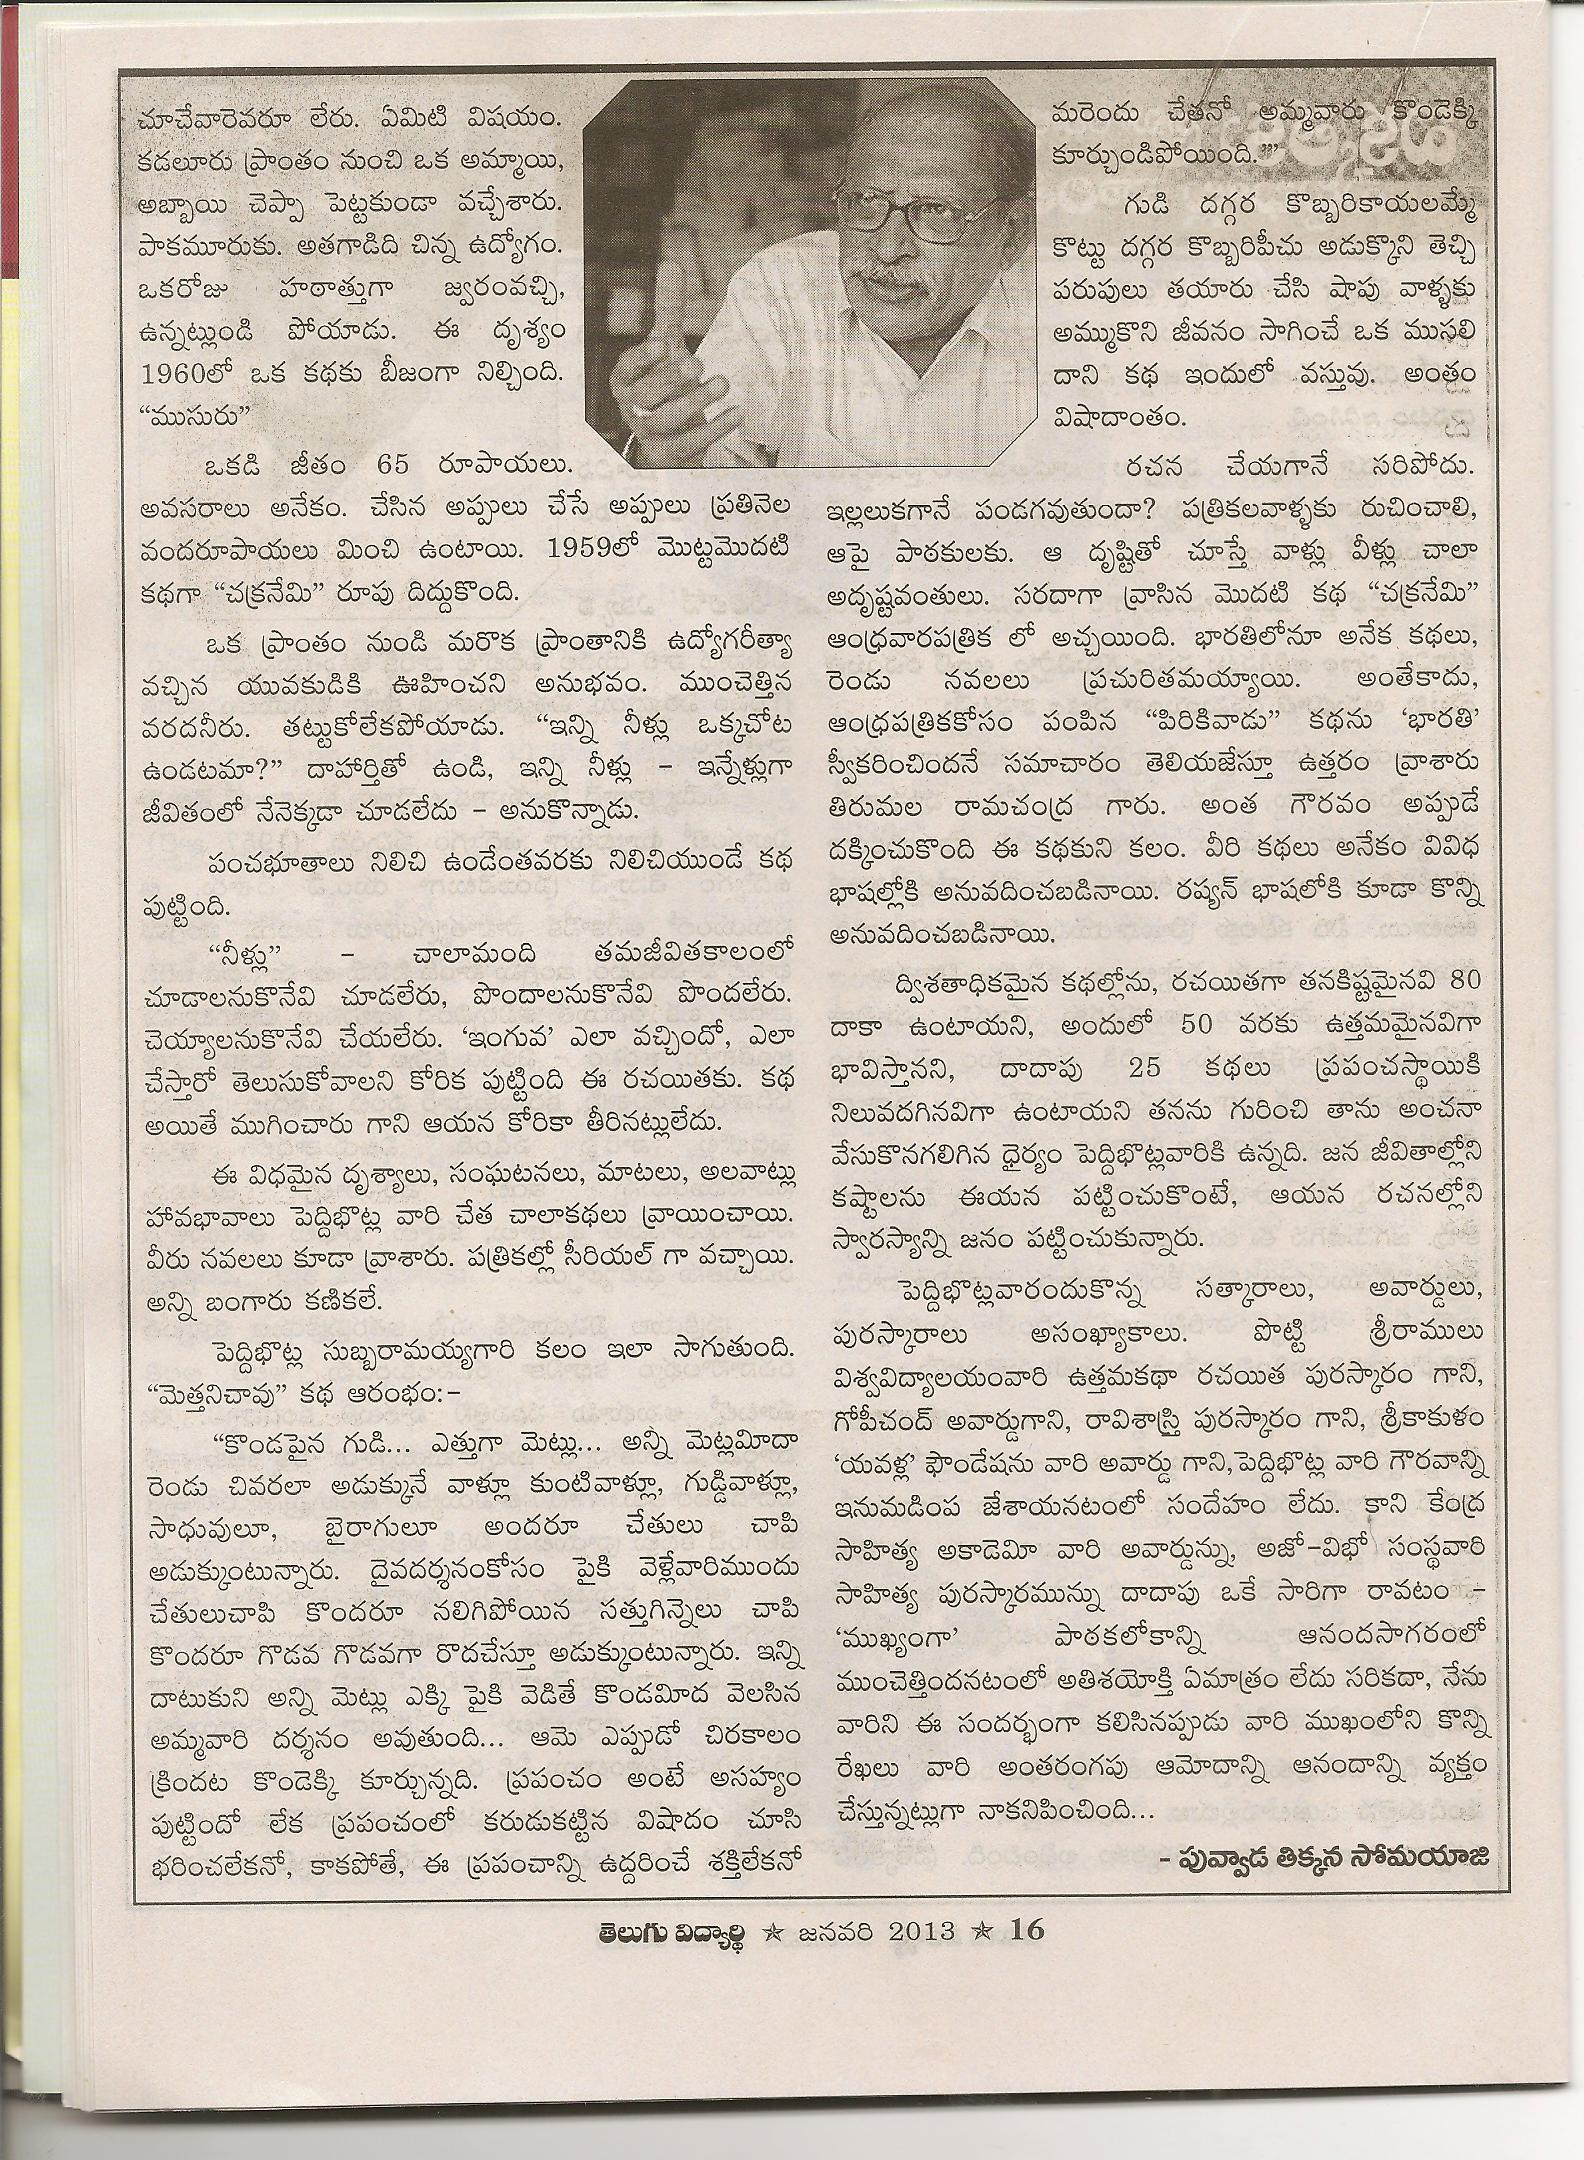 చూచేవారెవరూ లేరు. ఏమిటి విషయం.
కడలూరు ప్రాంతం నుంచి ఒక అమ్మాయి,
అబ్బాయి చెప్పా పెట్టకుండా వచ్చేశారు.
పాకమూరుకు. అతగాడిది చిన్న ఉద్యోగం.
ఒకరోజు హఠాత్తుగా జ్వరంవచ్చి,
ఉన్నట్లుండి పోయాడు. ఈ దృశ్యం
1960లో ఒక కథకు బీజంగా నిల్చింది.
“ముసురు”
ఒకడి జీతం 65 రూపాయలు.
అవసరాలు అనేకం. చేసిన అప్పులు చేసే అప్పులు ప్రతినెల
వందరూపాయలు మించి ఉంటాయి. 1959లో మొట్టమొదటి
కథగా “చక్రనేమి” రూపు దిద్దుకొంది.
ఒక ప్రాంతం నుండి మరొక ప్రాంతానికి ఉద్యోగరీత్యా
వచ్చిన యువకుడికి ఊహించని అనుభవం. ముంచెత్తిన
వరదనీరు. తట్టుకోలేకపోయాడు. “ఇన్ని నీళ్లు ఒక్కచోట
ఉండటమా?” దాహార్తితో ఉండి, ఇన్ని నీళ్లు – ఇన్నేళ్లుగా
జీవితంలో నేనెక్కడా చూడలేదు – అనుకొన్నాడు.
పంచభూతాలు నిలిచి ఉండేంతవరకు నిలిచియుండే కథ
పుట్టింది.
“నీళ్లు” – చాలామంది తమజీవితకాలంలో
చూడాలనుకొనేవి చూడలేరు, పొందాలనుకొనేవి పొందలేరు.
చెయ్యాలనుకొనేవి చేయలేరు. ‘ఇంగువ’ ఎలా వచ్చిందో, ఎలా
చేస్తారో తెలుసుకోవాలని కోరిక పుట్టింది ఈ రచయితకు. కథ
అయితే ముగించారు గాని ఆయన కోరికా తీరినట్లులేదు.
ఈ విధమైన దృశ్యాలు, సంఘటనలు, మాటలు, అలవాట్లు
హావభావాలు పెద్దిభొట్ల వారి చేత చాలాకథలు వ్రాయించాయి.
వీరు నవలలు కూడా వ్రాశారు. పత్రికల్లో సీరియల్ గా వచ్చాయి.
అన్ని బంగారు కణికలే.
పెద్దిభొట్ల సుబ్బరామయ్యగారి కలం ఇలా సాగుతుంది.
“మెత్తనిచావు” కథ ఆరంభం:–
“కొండపైన గుడి... ఎత్తుగా మెట్లు... అన్ని మెట్లమీదా
రెండు చివరలా అడుక్కునే వాళ్లూ కుంటివాళ్లూ, గుడ్డివాళ్లూ,
సాధువులూ, బైరాగులూ అందరూ చేతులు చాపి
అడుక్కుంటున్నారు. దైవదర్శనంకోసం పైకి వెళ్లేవారిముందు
చేతులుచాపి కొందరూ నలిగిపోయిన సత్తుగిన్నెలు చాపి
కొందరూ గొడవ గొడవగా రొదచేస్తూ అడుక్కుంటున్నారు. ఇన్ని
దాటుకుని అన్ని మెట్లు ఎక్కి పైకి వెడితే కొండమీద వెలసిన
అమ్మవారి దర్శనం అవుతుంది... ఆమె ఎప్పుడో చిరకాలం
క్రిందట కొండెక్కి కూర్చున్నది. ప్రపంచం అంటే అసహ్యం
పుట్టిందో లేక ప్రపంచంలో కరుడుకట్టిన విషాదం చూసి
భరించలేకనో, కాకపోతే, ఈ ప్రపంచాన్ని ఉద్దరించే శక్తిలేకనో
మరెందు చేతనో అమ్మవారు కొండెక్కి
కూర్చుండిపోయింది.””
గుడి దగ్గర కొబ్బరికాయలమ్మే
కొట్టు దగ్గర కొబ్బరిపీచు అడుక్కొని తెచ్చి
పరుపులు తయారు చేసి షాపు వాళ్ళకు
అమ్ముకొని జీవనం సాగించే ఒక ముసలి
దాని కథ ఇందులో వస్తువు. అంతం
విషాదాంతం.
రచన చేయగానే సరిపోదు.
ఇల్లలుకగానే పండగవుతుందా? పత్రికలవాళ్ళకు రుచించాలి,
ఆపై పాఠకులకు. ఆ దృష్టితో చూస్తే వాళ్లు వీళ్లు చాలా
అదృష్టవంతులు. సరదాగా వ్రాసిన మొదటి కథ “చక్రనేమి”
ఆంధ్రవారపత్రిక లో అచ్చయింది. భారతిలోనూ అనేక కథలు,
రెండు నవలలు ప్రచురితమయ్యాయి. అంతేకాదు,
ఆంధ్రపత్రికకోసం పంపిన “పిరికివాడు” కథను ‘భారతి’
స్వీకరించిందనే సమాచారం తెలియజేస్తూ ఉత్తరం వ్రాశారు
తిరుమల రామచంద్ర గారు. అంత గౌరవం అప్పుడే
దక్కించుకొంది ఈ కథకుని కలం. వీరి కథలు అనేకం వివిధ
భాషల్లోకి అనువదించబడినాయి. రష్యన్ భాషలోకి కూడా కొన్ని
అనువదించబడినాయి.
ద్విశతాధికమైన కథల్లోను, రచయితగా తనకిష్టమైనవి 80
దాకా ఉంటాయని, అందులో 50 వరకు ఉత్తమమైనవిగా
భావిస్తానని, దాదాపు 25 కథలు ప్రపంచస్థాయికి
నిలువదగినవిగా ఉంటాయని తనను గురించి తాను అంచనా
వేసుకొనగలిగిన ధైర్యం పెద్దిభొట్లవారికి ఉన్నది. జన జీవితాల్లోని
కష్టాలను ఈయన పట్టించుకొంటే, ఆయన రచనల్లోని
స్వారస్యాన్ని జనం పట్టించుకున్నారు.
పెద్దిభొట్లవారందుకొన్న సత్కారాలు, అవార్డులు,
పురస్కారాలు అసంఖ్యాకాలు. పొట్టి శ్రీరాములు
విశ్వవిద్యాలయంవారి ఉత్తమకథా రచయిత పురస్కారం గాని,
గోపీచంద్ అవార్డుగాని, రావిశాస్త్రి పురస్కారం గాని, శ్రీకాకుళం
‘యవళ్ల’ ఫౌండేషను వారి అవార్డు గాని,పెద్దిభొట్ల వారి గౌరవాన్ని
ఇనుమడింప జేశాయనటంలో సందేహం లేదు. కాని కేంద్ర
సాహిత్య అకాడెమీ వారి అవార్డున్ను, అజో-విభో సంస్థవారి
సాహిత్య పురస్కారమున్ను దాదాపు ఒకే సారిగా రావటం –
‘ముఖ్యంగా’ పాఠకలోకాన్ని ఆనందసాగరంలో
ముంచెత్తిందనటంలో అతిశయోక్తి ఏమాత్రం లేదు సరికదా, నేను
వారిని ఈ సందర్భంగా కలిసినప్పుడు వారి ముఖంలోని కొన్ని
రేఖలు వారి అంతరంగపు ఆమోదాన్ని ఆనందాన్ని వ్యక్తం
చేస్తున్నట్లుగా నాకనిపించింది...
- పువ్వాడ తిక్కన సోమయాజి
తెలుగు విద్యార్థి ☆ జనవరి 2013 ☆ 16